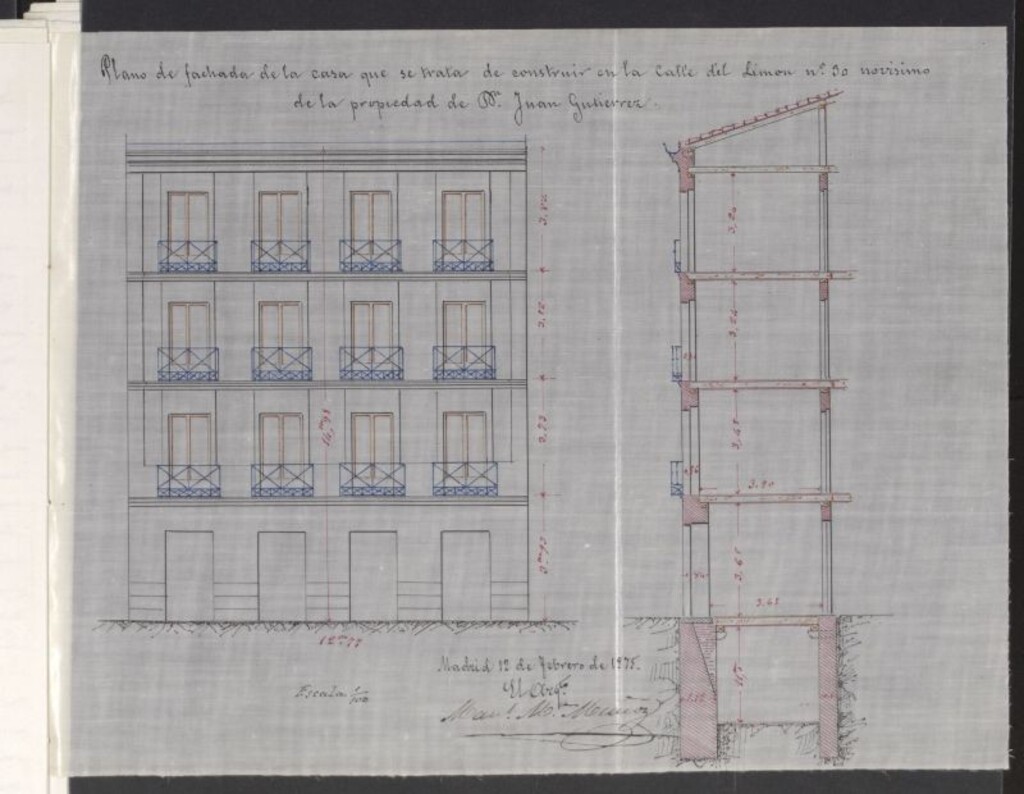 Plano de fachada de la casa que se trata de construir en la Calle del Limon nº 30 novisimo
de la propiedad de Dn. Juan Gutierrez.
3,82
3,24
3,12
3,24
14,m98
3,23
3,48
3.90
3,65
3.65
12m77
Madrid 12 de febrero de 1875.
El Arqto
Escala 1/100
Manl. Ma. Muñoz